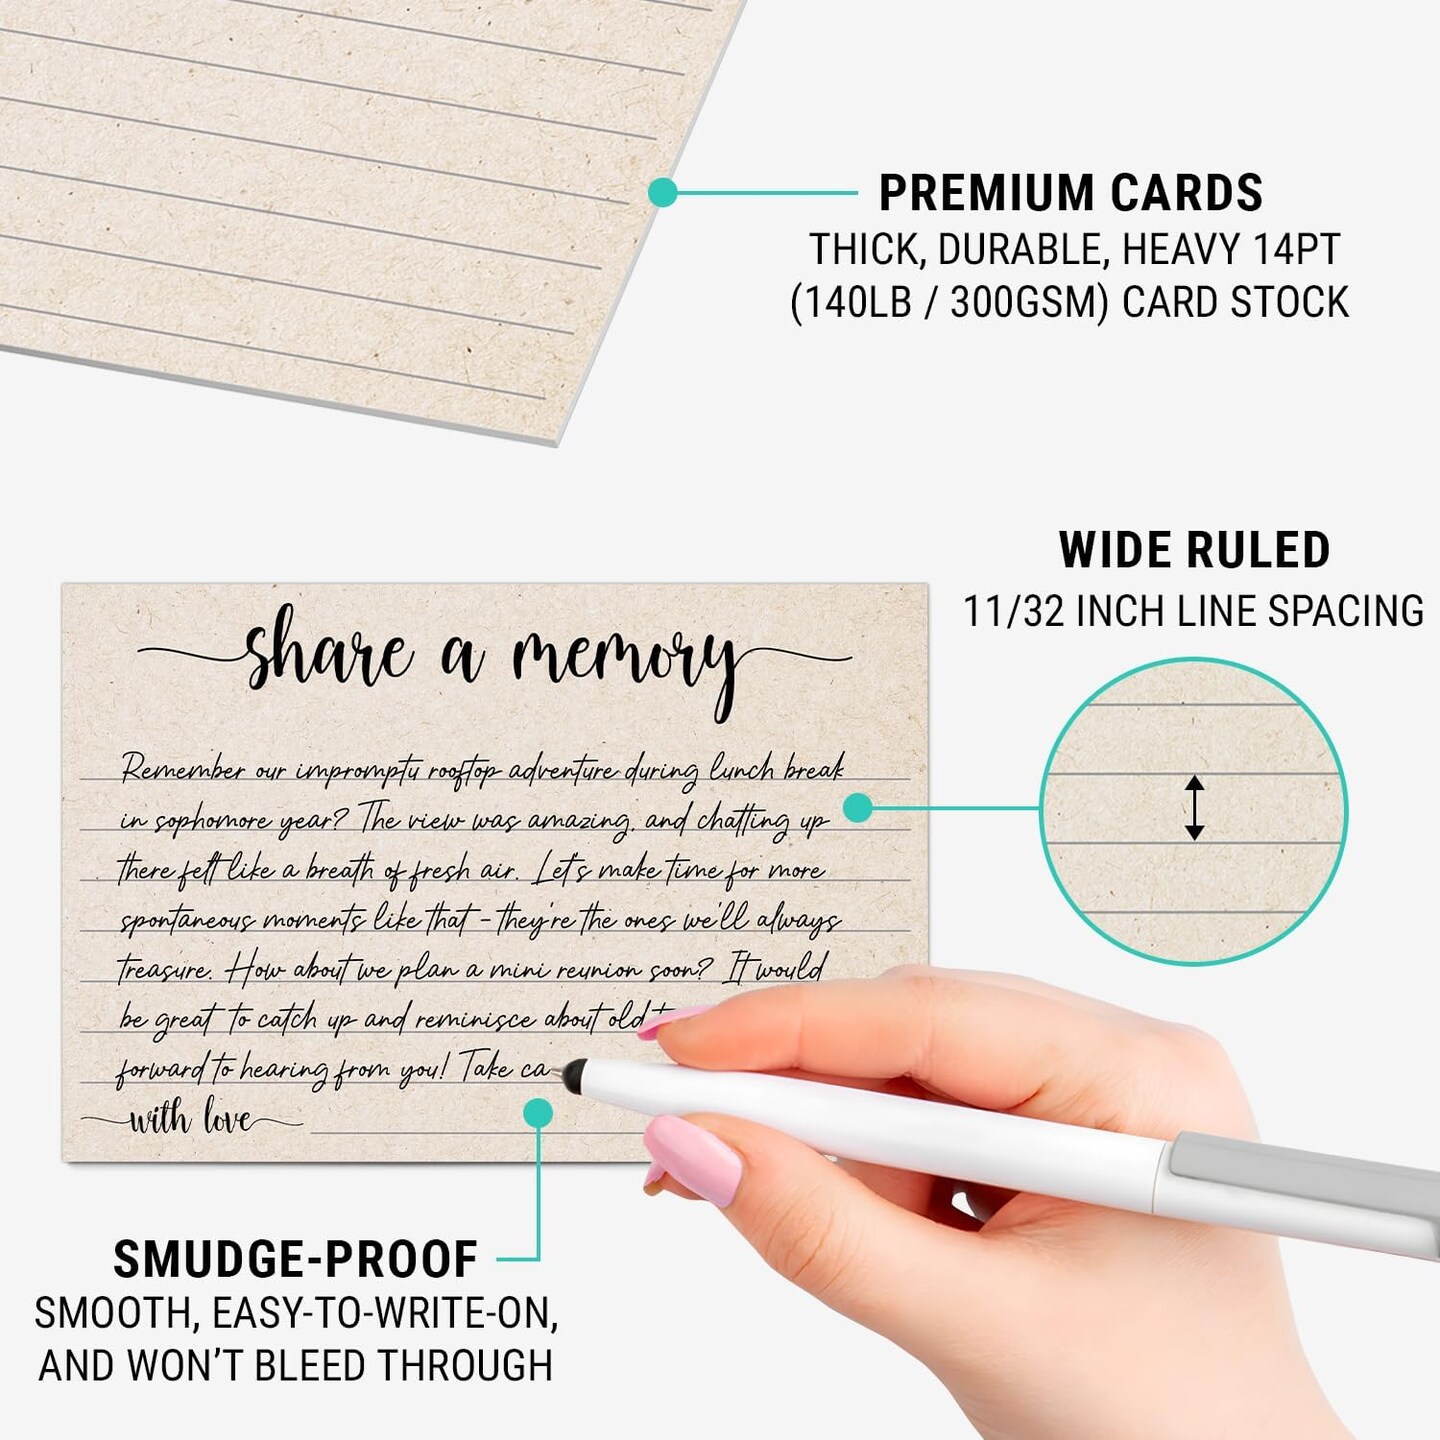 PREMIUM CARDS
THICK, DURABLE, HEAVY 14PT
(140LB / 300GSM) CARD STOCK
WIDE RULED
11/32 INCH LINE SPACING
share a memory
Remember our impromptu rooftop adventure during lunch break
in sophomore year? The view was amazing, and chatting up
there felt like a breath of fresh air. Let's make time for more
spontaneous moments like that - they're the ones we'll always
treasure. How about we plan a mini reunion soon? It would
be great to catch up and reminisce about old
forward to hearing from you! Take ca
with love
SMUDGE-PROOF
SMOOTH, EASY-TO-WRITE-ON,
AND WON'T BLEED THROUGH